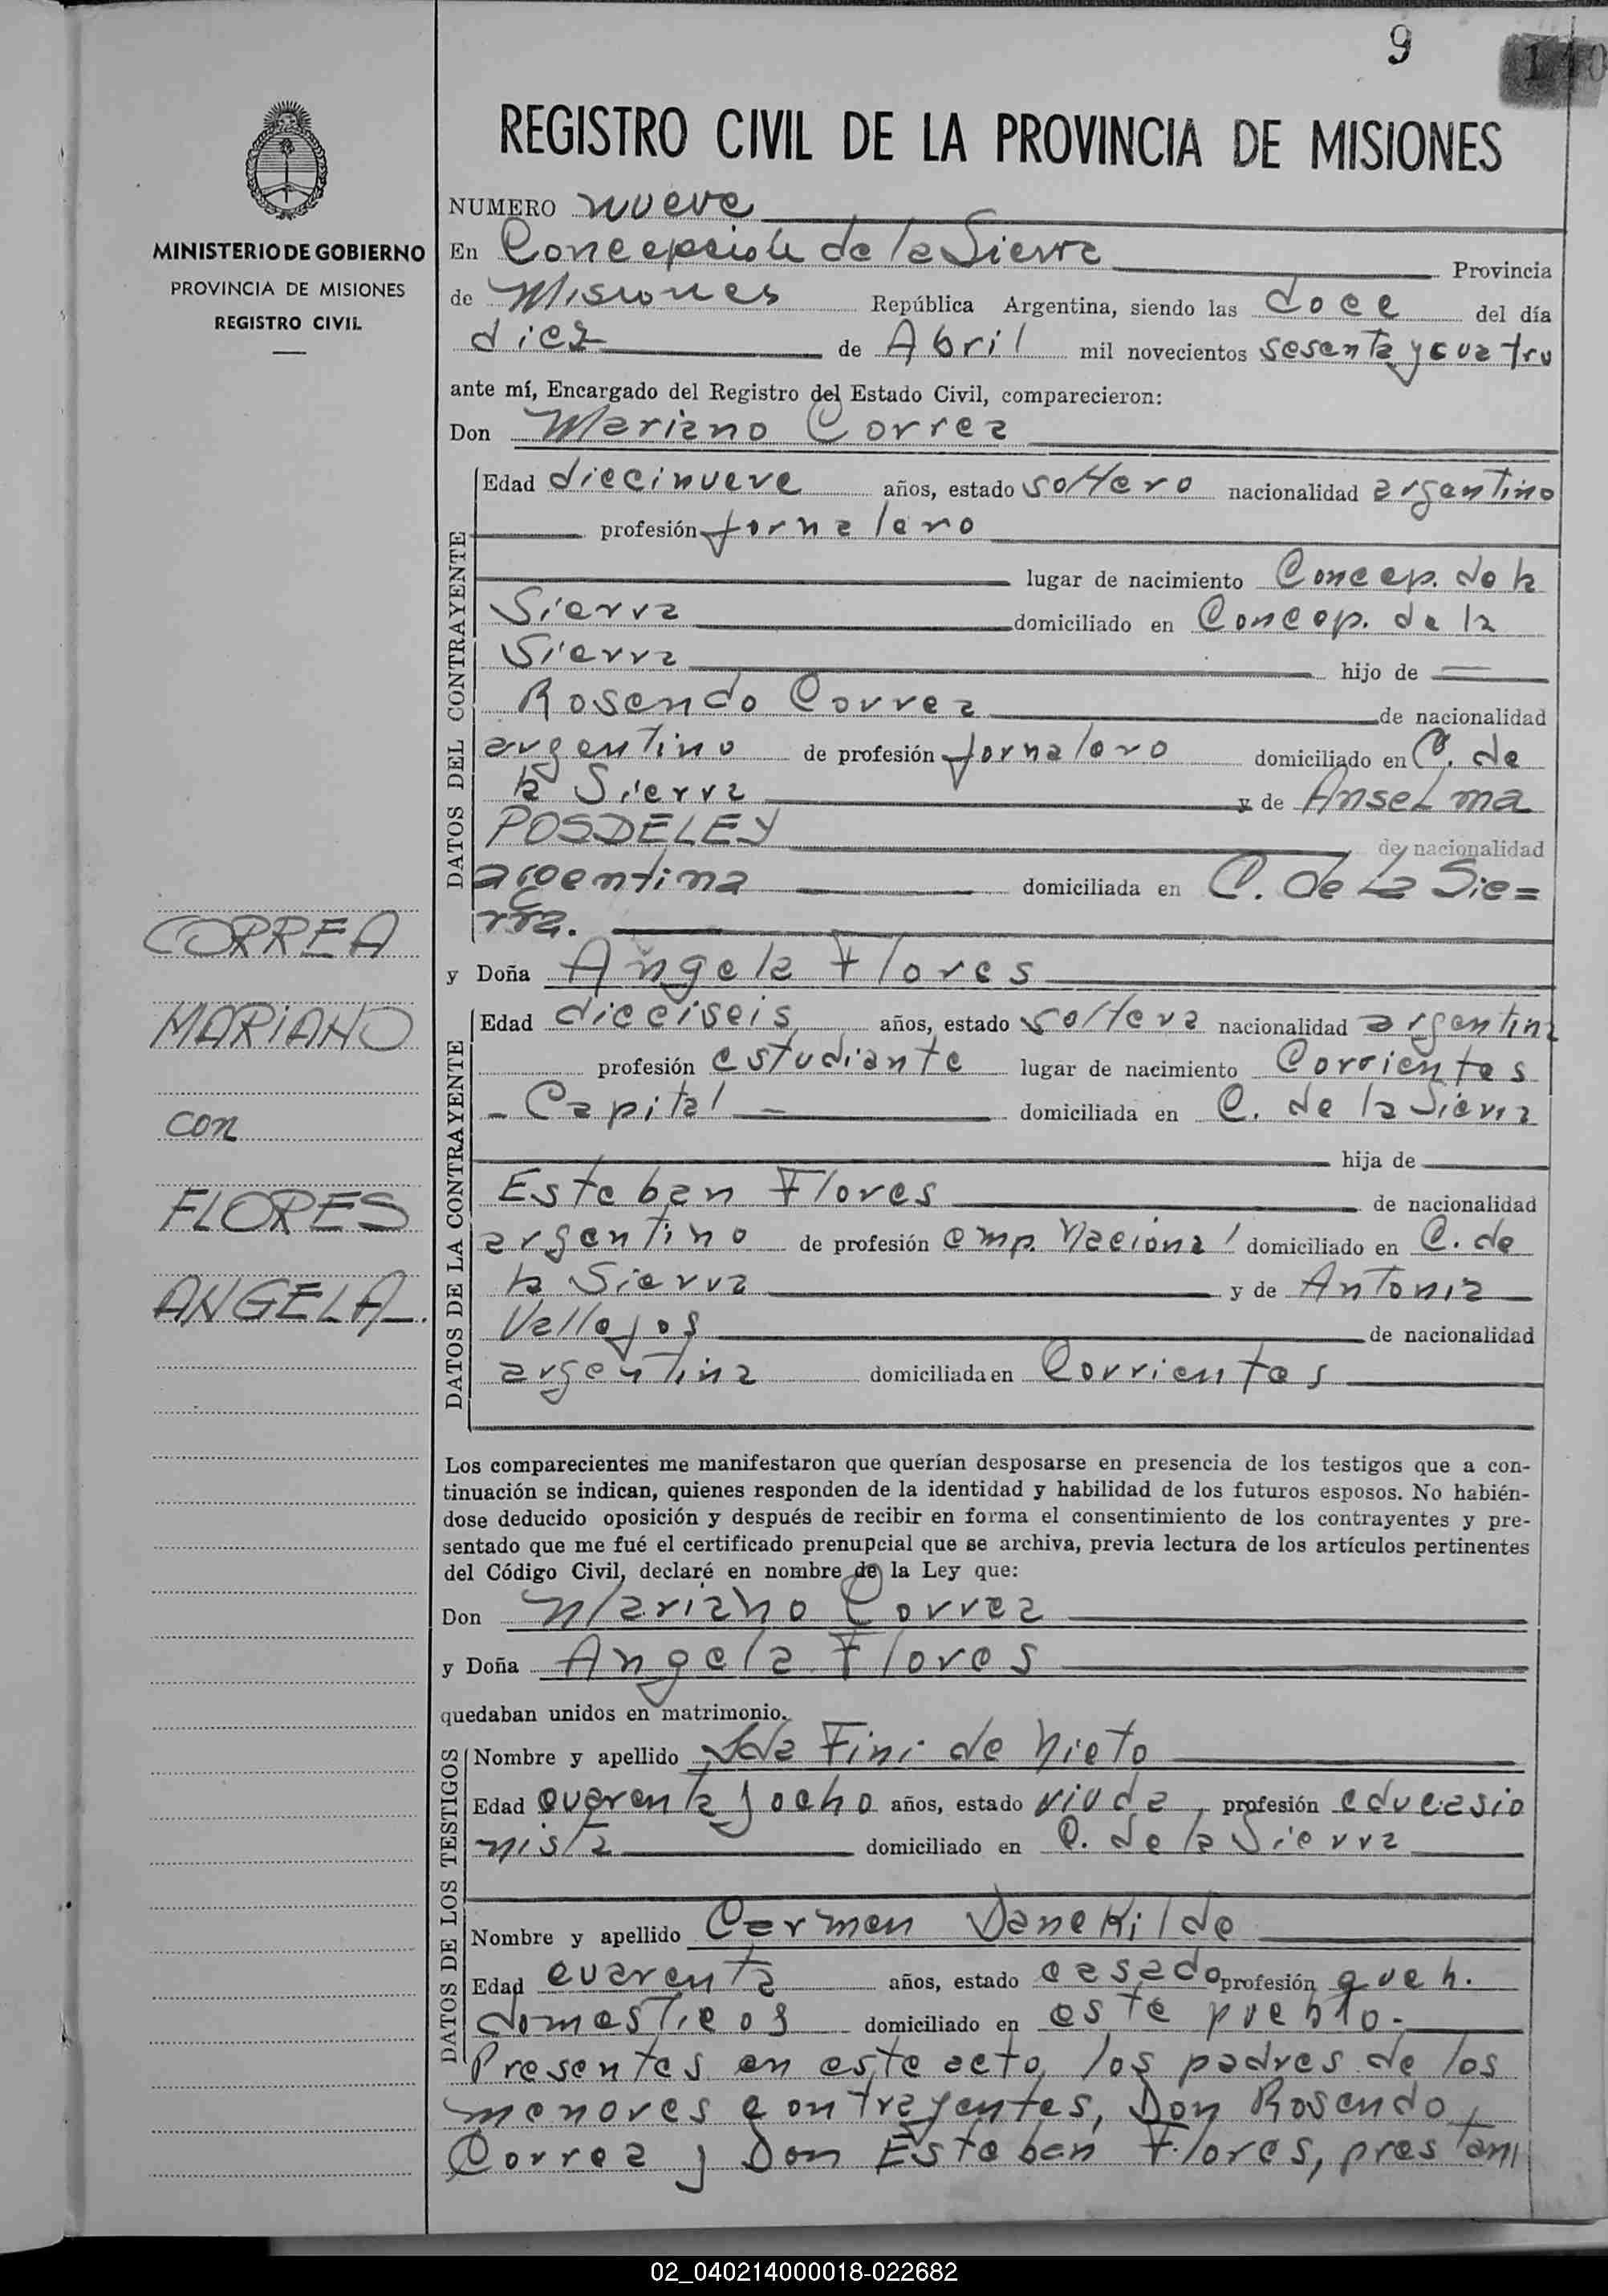 9
110
REGISTRO CIVIL DE LA PROVINCIA DE MISIONES
MINISTERIO DE GOBIERNO
PROVINCIA DE MISIONES
REGISTRO CIVIL
NUMERO nueve
En Concepción de la Sierra Provincia
de Misiones República Argentina, siendo las doce del día
diez de Abril mil novecientos sesenta y cuatro
ante mí, Encargado del Registro del Estado Civil, comparecieron:
Don Mariano Correa
DATOS DEL CONTRAYENTE
Edad diecinueve años, estado soltero nacionalidad argentino
profesión jornalero
lugar de nacimiento Concep. de la
Sierra domiciliado en Concep. de la
Sierra hijo de
Rosendo Correa de nacionalidad
argentino de profesión jornalero domiciliado en C. de
la Sierra y de Anselma
POSDELEY de nacionalidad
argentina domiciliada en C. de La Sie=
rra.
y Doña Angela Flores
DATOS DE LA CONTRAYENTE
Edad dieciseis años, estado soltera nacionalidad argentina
profesión estudiante lugar de nacimiento Corrientes
- Capital - domiciliada en C. de la Sierra
hija de
Esteban Flores de nacionalidad
argentino de profesión emp. Nacional domiciliado en C. de
la Sierra y de Antonia
Vallejos de nacionalidad
argentina domiciliada en Corrientes
CORREA
MARIANO
con
FLORES
ANGELA.
Los comparecientes me manifestaron que querían desposarse en presencia de los testigos que a con-
tinuación se indican, quienes responden de la identidad y habilidad de los futuros esposos. No habién-
dose deducido oposición y después de recibir en forma el consentimiento de los contrayentes y pre-
sentado que me fué el certificado prenupcial que se archiva, previa lectura de los artículos pertinentes
del Código Civil, declaré en nombre de la Ley que:
Don Mariano Correa
y Doña Angela Flores
quedaban unidos en matrimonio.
DATOS DE LOS TESTIGOS
Nombre y apellido Ida Fini de Nieto
Edad cuarenta y ocho años, estado viuda, profesión educasio
nista domiciliado en C. de la Sierra
DATOS DE LOS TESTIGOS
Nombre y apellido Carmen Danekilde
Edad cuarenta años, estado casado profesión queh.
domesticos domiciliado en este pueblo.-
Presentes en este acto, los padres de los
menores contrayentes, Don Rosendo
Correa y Don Esteban Flores, prestan
02_040214000018-022682